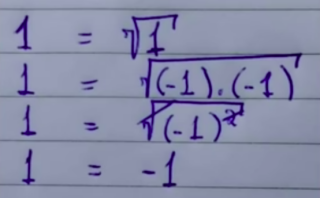 1 = √1
1 = √(-1).(-1)
1 = √(-1)²
1 = -1